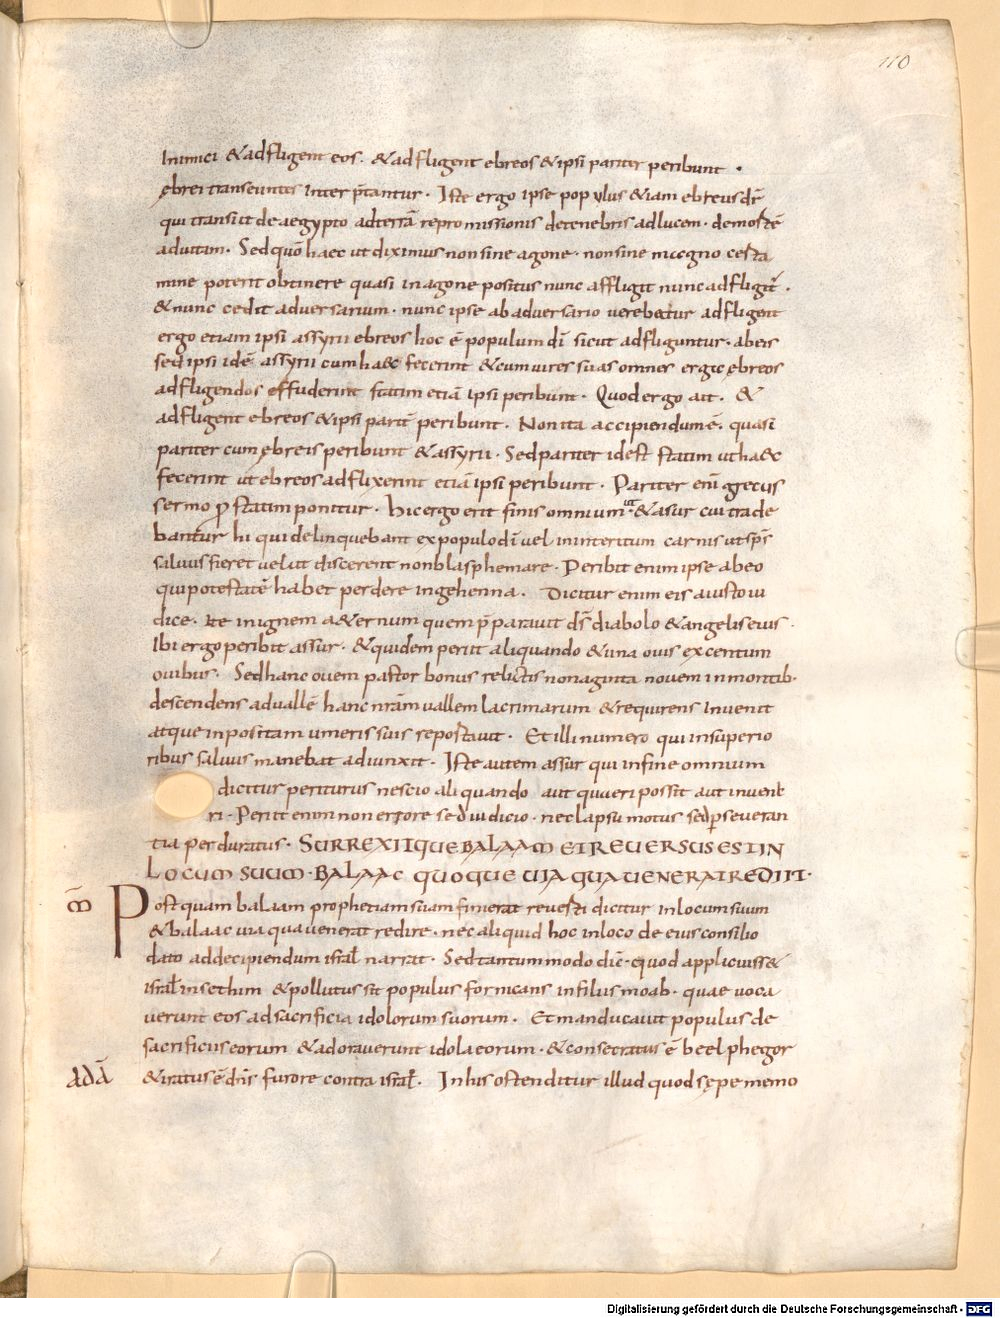 110
Inimici & adfligent eos. & adfligent ebreos & ipsi pariter peribunt .
ebrei transeuntes interp̄tantur . Iste ergo ipse populus & iam ebreus dr̄
qui transiit de aegypto ad terrā repromissionis de tenebris ad lucem . de morte
ad uitam . Sed quō haec ut diximus non sine agone . non sine magno certa
mine poterit obtinere quasi in agone positus nunc affligit nunc adfligit̄ .
& nunc cedit aduersarium . nunc ipse ab aduersario uerebatur adfligent
ergo etiam ipsi assyrii ebreos hoc ē populum dī sicut adfliguntur . ab eis
sed ipsi idē assyrii cum haec fecerint & cum uires suas omnes erga ebreos
adfligendos effuderint statim etiā ipsi peribunt . Quod ergo ait . &
adfligent ebreos & ipsi parit̄ peribunt . Non ita accipiendum ē . quasi
pariter cum ebreis peribunt & assyrii . Sed pariter idest statim ut haec
fecerint ut ebreos adflixerint etiā ipsi peribunt . Pariter enī grecus
sermo ꝓ statim ponitur . hic ergo erit finis omnium ut & asur cui trade
bantur hi qui delinquebant ex populo dī uel in interitum carnis ut sp̄s
saluus fieret uel ut discerent non blasphemare . Peribit enim ipse ab eo
qui potestatē habet perdere in gehenna . Dicitur enim eis a iusto iu
dice . Ite in ignem aeternum quem p̄parauit ds̄ diabolo & angelis eius .
Ibi ergo peribit assur . & quidem periit aliquando & una ouis ex centum
ouibus . Sed hanc ouem pastor bonus relictis nonaginta nouem in montib·
descendens ad uallē hanc nr̄am uallem lacrimarum & requirens inuenit
atque inpositam umeris suis repostauit . Et illi numero qui in superio
ribus saluus manebat adiunxit . Iste autem assur qui in fine omnium
dicitur periturus nescio aliquando aut quaeri possit aut inueni
ri . Periit enim non errore sed iudicio . nec lapsu motus sed ꝑseueran
tia perduratus . SURREXITQUE BALAAM ET REUERSUS EST IN
LOCUM SUUM . BALAAC QUOQUE UIA QUA UENERAT REDIIT .
Postquam balaam prophetiam suam finierat reuerti dicitur in locum suum
& balaac uia qua uenerat redire . nec aliquid hoc in loco de eius consilio
dato ad decipiendum isrƚ narrat . Sed tantummodo dic̄ . quod applicuisse
israƚ in sethim & pollutus sit populus fornicans in filius moab . quae uoca
uerunt eos ad sacrificia idolorum suorum . Et manducauit populus de
sacrificiis eorum & adorauerunt idola eorum . & consecratus ē beelphegor
& iratus ē dn̄s furore contra israƚ . In his ostenditur illud quod sępe memo
adā